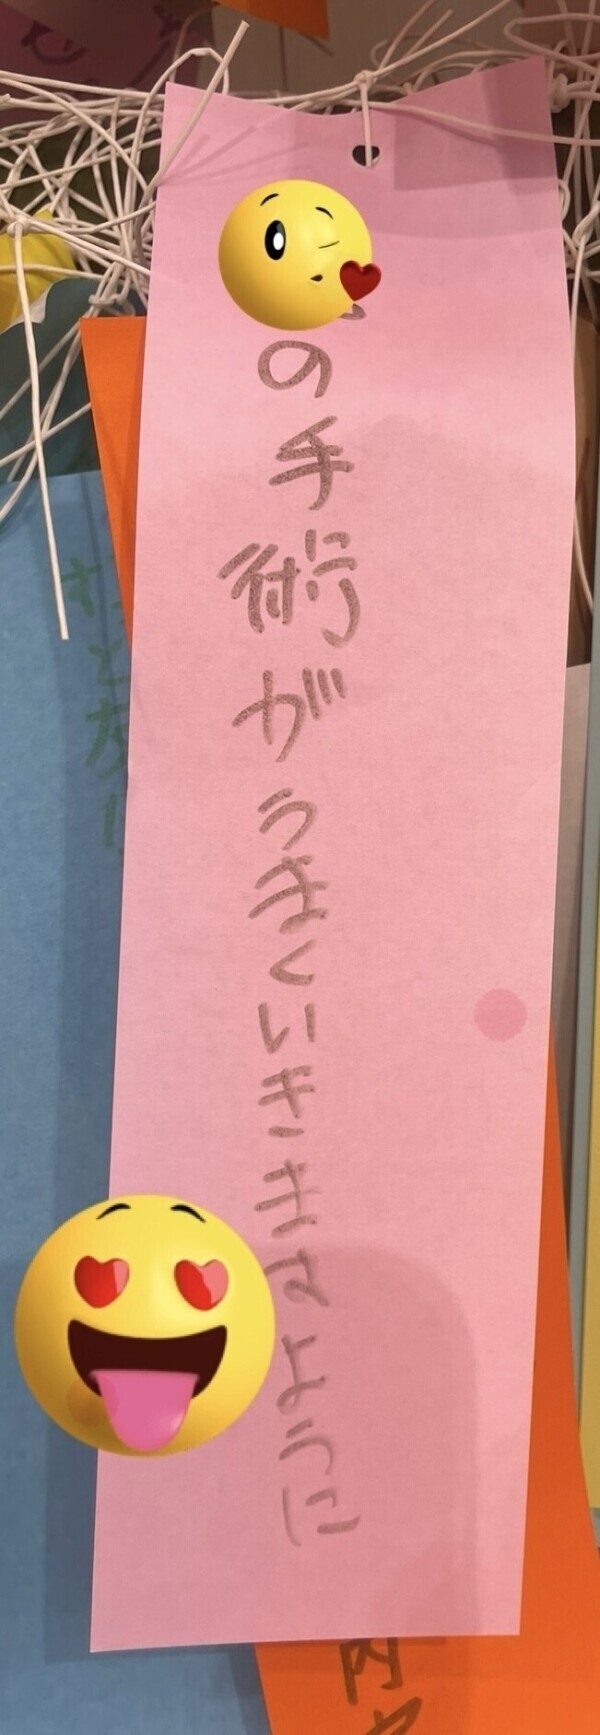 の手術がうまくいきますように
内